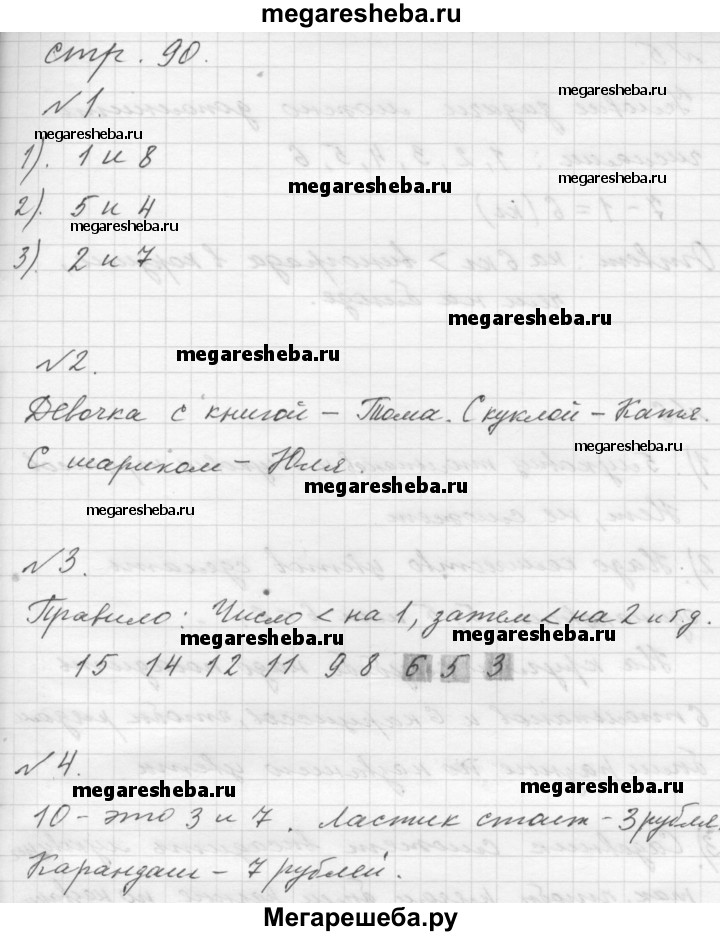 megaresheba.ru
стр. 90.
megaresheba.ru
№1.
megaresheba.ru
1). 1 и 8
megaresheba.ru
megaresheba.ru
2). 5 и 4
megaresheba.ru
3). 2 и 7
megaresheba.ru
№2.
megaresheba.ru
Девочка с книгой - Тома. С куклой - Катя.
megaresheba.ru
С шариком - Юля.
megaresheba.ru
megaresheba.ru
№3.
Правило: Число < на 1, затем < на 2 и т.д.
megaresheba.ru
megaresheba.ru
15 14 12 11 9 8 6 5 3
№4.
megaresheba.ru
megaresheba.ru
10 - это 3 и 7. Ластик стоит - 3 рубля,
Карандаш - 7 рублей.
Мегарешеба.ру